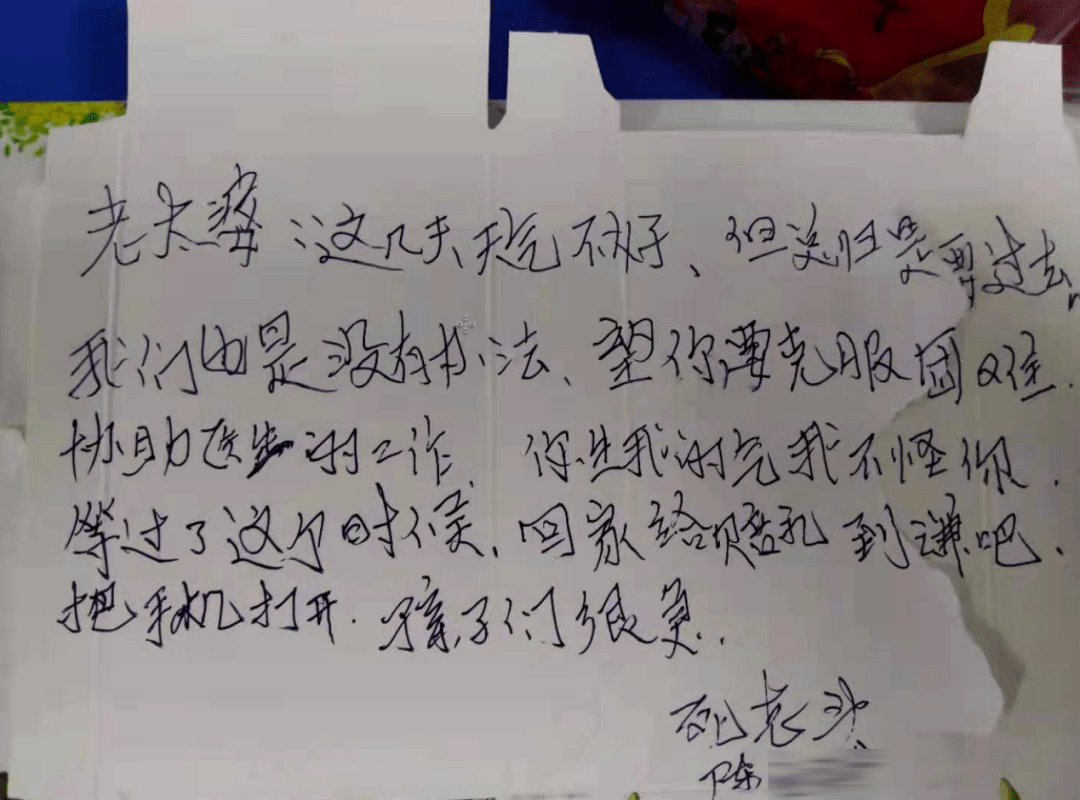 老太婆：这几天天气不好、但总归是要过去，
我们也是没有办法、望你要克服困难.
协助医生的工作. 你生我的气我不怪你.
等过了这个时候、回家给你赔礼到谦吧.
把手机打开. 孩子们很急.
死老头
陈